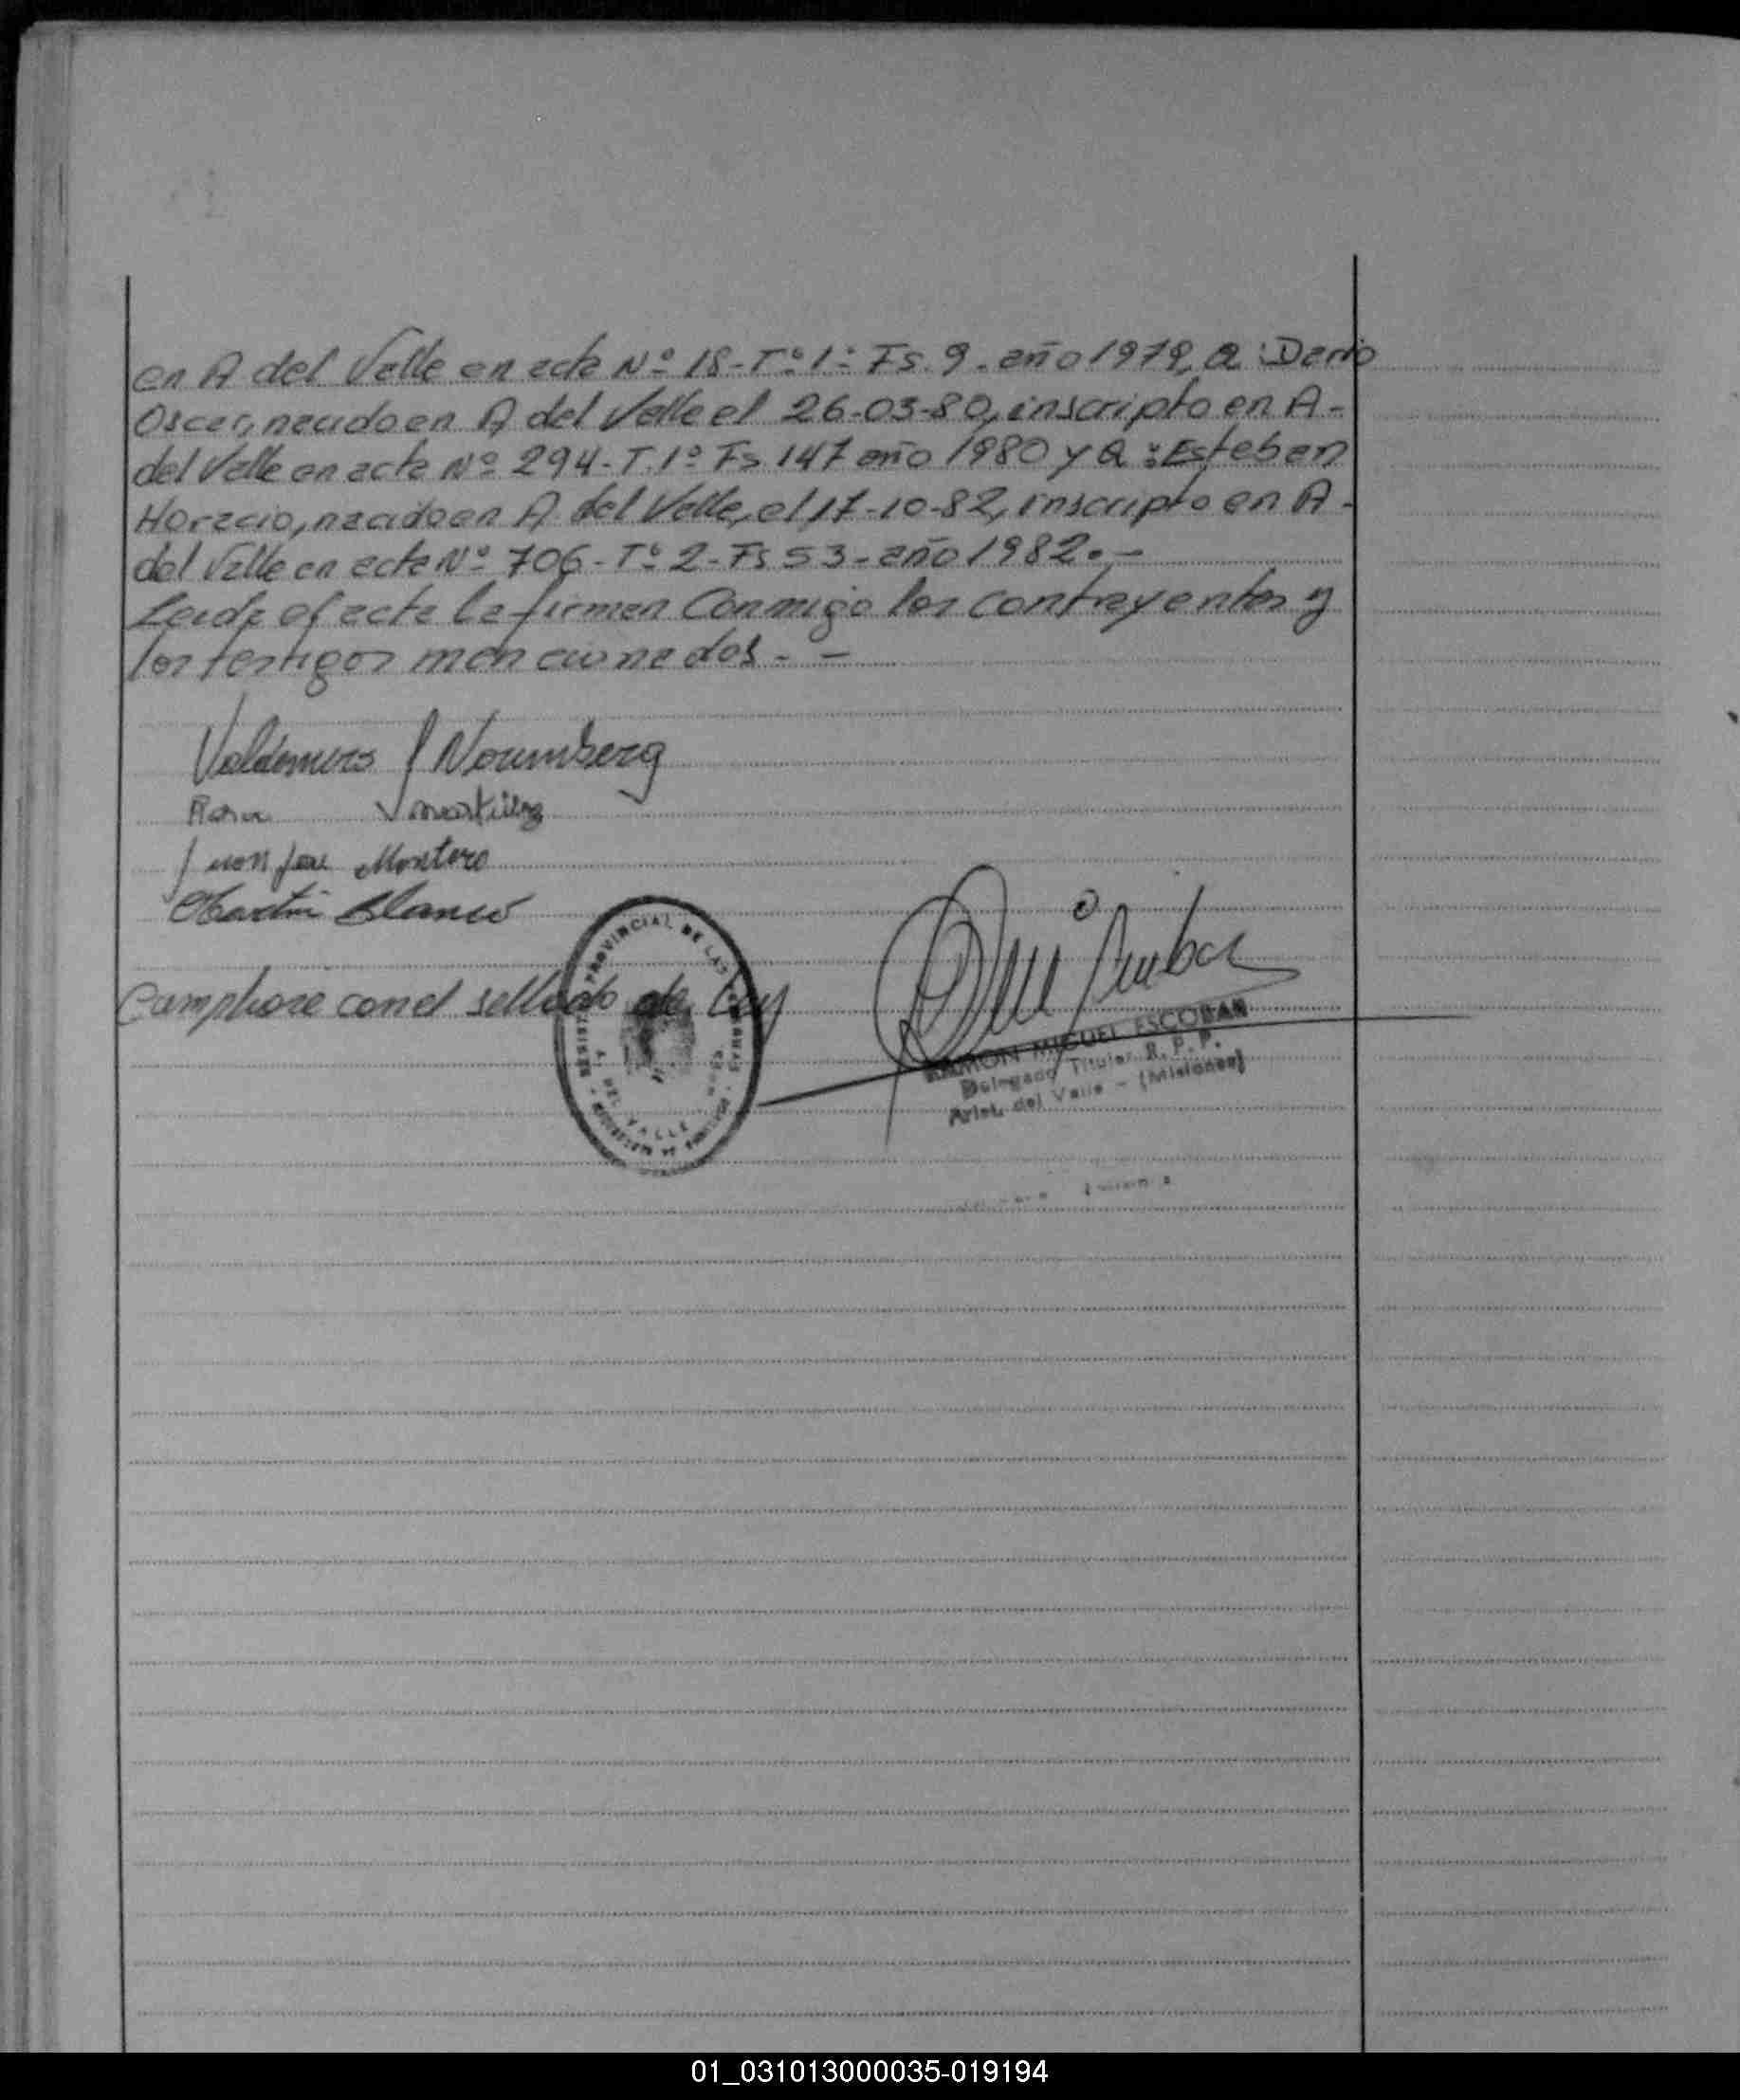 en A del Valle en acta Nº 18-Tº1º Fs. 9. año 1979, a: Dario
Oscar, nacido en A del Valle el 26-03-80, inscripto en A-
del Valle en acta Nº 294-T.1º Fs 147 año 1980 y a: Esteban
Horacio, nacido en A del Valle, el 17-10-82, inscripto en A-
del Valle en acta Nº 706-Tº 2-Fs 53-año 1982.-
Leida el acta la firman conmigo los contrayentes y
los testigos mencionados. -
Valdemiro Nournberg
Rosa Martinez
Juan Jose Montero
Martin Blanco
Camphore con el sellado de Ley
REGISTRO PROVINCIAL DE LAS PERSONAS
A. DEL VALLE
RAMON MIGUEL ESCOBAR
Delegado Titular R. P. P.
Arist. del Valle - (Misiones)
01_031013000035-019194